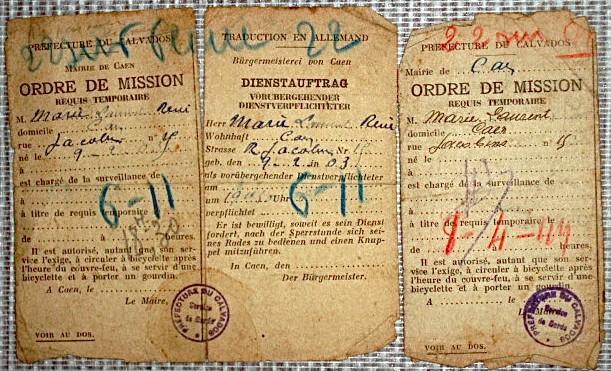 PREFECTURE DU CALVADOS
Mairie de Caen
ORDRE DE MISSION
REQUIS TEMPORAIRE
M. Marie Laurent René
domicile Caen
rue Jacobins n°
né le 9-2
est chargé de la surveillance de
6-11
à titre de requis temporaire
de à heures.
Il est autorisé, autant que son ser-
vice l'exige, à circuler à bicyclette après
l'heure du couvre-feu, à se servir d'une
bicyclette et à porter un gourdin.
A Caen, le
Le Maire,
PREFECTURE DU CALVADOS
Service de Garde
VOIR AU DOS.
22
TRADUCTION EN ALLEMAND
Bürgermeisterei von Caen
DIENSTAUFTRAG
VORÜBERGEHENDER
DIENSTVERPFLICHTETER
Herr Marie Laurent René
Wohnhaft Caen
Strasse R Jacobins Nr
geb. den 9-2 in 03
als vorübergehender Dienstverpflichteter
am 6-11
von Uhr
verpflichtet
Er ist bewilligt, soweit es sein Dienst
fordert, nach der Sperrstunde sich sei-
nes Rades zu bedienen und einen Knup-
pel mitzuführen.
In Caen, den
Der Bürgermeister.
22
PREFECTURE DU CALVADOS
Mairie de Caen
ORDRE DE MISSION
REQUIS TEMPORAIRE
M. Marie Laurent
domicile Caen
rue Jacobins n°
né le
est chargé de la surveillance de
à titre de requis temporaire le
-4-44
de à heures.
Il est autorisé, autant que son ser-
vice l'exige, à circuler à bicyclette après
l'heure du couvre-feu, à se servir d'une
bicyclette et à porter un gourdin.
A , le
PREFECTURE DU CALVADOS
Service de Garde
VOIR AU DOS.